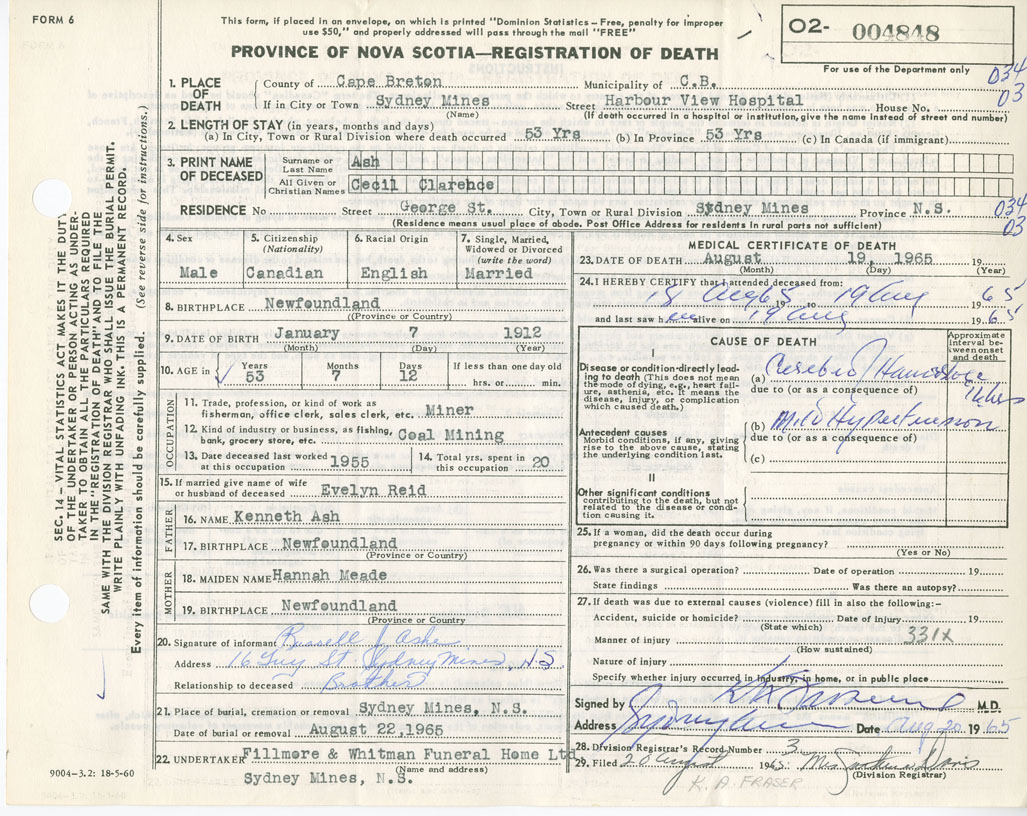 FORM 6
This form, if placed in an envelope, on which is printed "Dominion Statistics – Free, penalty for improper
use $50," and properly addressed will pass through the mail "FREE"
PROVINCE OF NOVA SCOTIA—REGISTRATION OF DEATH
O2- 004848
For use of the Department only
034
03
1. PLACE OF DEATH
County of Cape Breton Municipality of C.B.
If in City or Town Sydney Mines Street Harbour View Hospital House No.
(Name) (If death occurred in a hospital or institution, give the name instead of street and number)
2. LENGTH OF STAY (in years, months and days)
(a) In City, Town or Rural Division where death occurred 53 Yrs (b) In Province 53 Yrs (c) In Canada (if immigrant)
3. PRINT NAME OF DECEASED
Surname or Last Name Ash
All Given or Christian Names Cecil Clarence
RESIDENCE No. Street George St. City, Town or Rural Division Sydney Mines Province N.S.
034
03
(Residence means usual place of abode. Post Office Address for residents in rural parts not sufficient)
4. Sex
Male
5. Citizenship
(Nationality)
Canadian
6. Racial Origin
English
7. Single, Married,
Widowed or Divorced
(write the word)
Married
8. BIRTHPLACE Newfoundland
(Province or Country)
9. DATE OF BIRTH January 7 1912
(Month) (Day) (Year)
10. AGE in Years Months Days If less than one day old
53 7 12 hrs. or min.
OCCUPATION
11. Trade, profession or kind of work as
fisherman, office clerk, sales clerk, etc. Miner
12. Kind of industry or business, as fishing,
bank, grocery store, etc. Coal Mining
13. Date deceased last worked
at this occupation 1955
14. Total yrs. spent in
this occupation 20
15. If married give name of wife
or husband of deceased Evelyn Reid
FATHER
16. NAME Kenneth Ash
17. BIRTHPLACE Newfoundland
(Province or Country)
MOTHER
18. MAIDEN NAME Hannah Meade
19. BIRTHPLACE Newfoundland
(Province or Country)
20. Signature of informant Russell J Ash
Address 16 Guy St Sydney Mines, N.S
Relationship to deceased Brother
21. Place of burial, cremation or removal Sydney Mines, N.S.
Date of burial or removal August 22,1965
22. UNDERTAKER Fillmore & Whitman Funeral Home Ltd
(Name and address)
Sydney Mines, N.S.
MEDICAL CERTIFICATE OF DEATH
23. DATE OF DEATH August 19, 1965 19
(Month) (Day) (Year)
24. I HEREBY CERTIFY that I attended deceased from:
18 Aug 65 19 to 19 Aug 1965
and last saw h alive on 19 Aug 1965
CAUSE OF DEATH
Approximate
interval be-
tween onset
and death
I
Disease or condition-directly lead-
ing to death (This does not mean
the mode of dying, e.g., heart failure,
asthenia, etc. It means the
disease, injury, or complication
which caused death.)
(a) Cerebral
due to (or as a consequence of)
(b) Mild Hypertension
due to (or as a consequence of)
(c)
Antecedent causes
Morbid conditions, if any, giving
rise to the above cause, stating
the underlying condition last.
II
Other significant conditions
contributing to the death, but not
related to the disease or condi-
tion causing it.
25. If a woman, did the death occur during
pregnancy or within 90 days following pregnancy?
(Yes or No)
26. Was there a surgical operation? Date of operation 19
State findings Was there an autopsy?
27. If death was due to external causes (violence) fill in also the following:-
Accident, suicide or homicide? Date of injury 19
(State which)
331X
Manner of injury
(How sustained)
Nature of injury
Specify whether injury occurred in industry, in home, or in public place
Signed by M.D.
Address Sydney Mines Date Aug 20 1965
28. Division Registrar's Record Number 3
29. Filed 20 August 1965 Mrs Davis
(Division Registrar)
K. A. FRASER
SEC. 14 – VITAL STATISTICS ACT MAKES IT THE DUTY
OF THE UNDERTAKER OR PERSON ACTING AS UNDER-
TAKER TO OBTAIN ALL THE PARTICULARS REQUIRED
IN THE "REGISTRATION OF DEATH" AND TO FILE THE
SAME WITH THE DIVISION REGISTRAR WHO SHALL ISSUE THE BURIAL PERMIT.
WRITE PLAINLY WITH UNFADING INK. THIS IS A PERMANENT RECORD.
Every item of information should be carefully supplied. (See reverse side for instructions.)
9004-3.2: 18-5-60